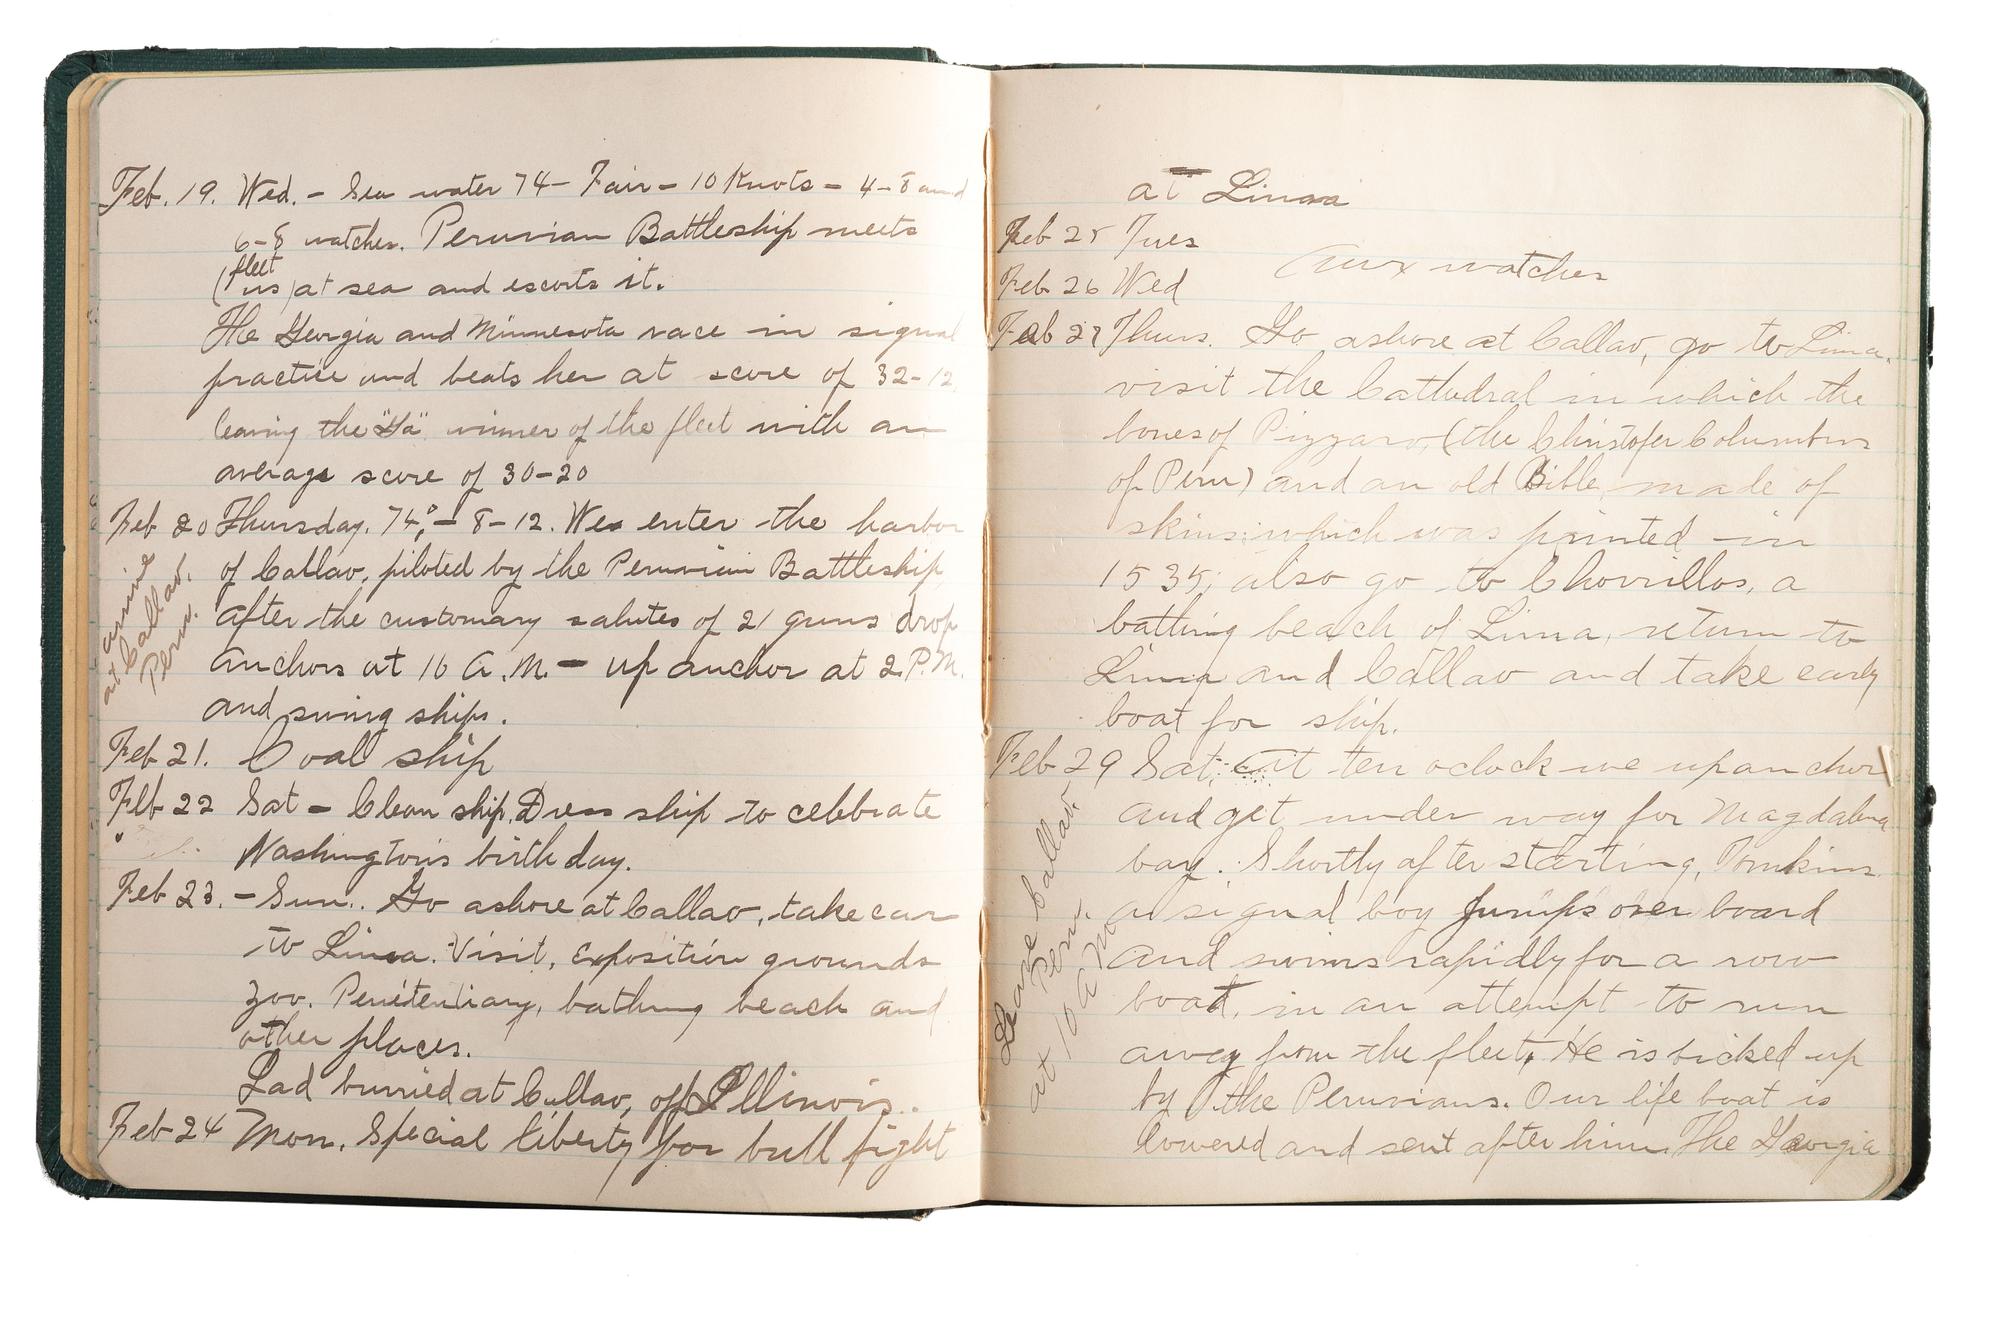 Feb. 19. Wed. - Sea water 74 - Fair - 10 Knots - 4-8 and
6-8 watches. Peruvian Battleship meets
(fleet
us) at sea and escorts it.
The Georgia and Minnesota race in signal
practice and beats her at score of 32-12
leaving the "Ga" winner of the fleet with an
average score of 30-20
Feb 20 Thursday. 74°, - 8-12. We enter the harbor
of Callao, piloted by the Peruvian Battleship
after the customary salutes of 21 guns drop
anchors at 10 A.M. - up anchor at 2 P.M.
and swing ships.
arrive
at Callao,
Peru.
Feb 21. Coal ship
Feb 22 Sat - Clean ship, Dress ship to celebrate
Washington's birthday.
Feb 23. - Sun. Go ashore at Callao, take car
to Lima. Visit, Exposition grounds
zoo. Penitentiary, bathing beach and
other places.
Lad burried at Callao, off Illinois.
Feb 24 Mon. Special liberty for bull fight
at Lima
Feb 25 Tues
Aux watches
Feb 26 Wed
Feb 27 Thurs. Go ashore at Callao, go to Lima.
visit the Cathedral in which the
bones of Pizzaro, (the Christofer Columbus
of Peru) and an old Bible made of
skins which was printed in
1535, also go to Chorrillos, a
bathing beach of Lima, return to
Lima and Callao and take early
boat for ship.
Feb 29 Sat, at ten oclock we up anchor
and get under way for Magdalena
bay. Shortly after starting, Tomkins
a signal boy jumps over board
and swims rapidly for a row
boat, in an attempt to run
away from the fleet, He is picked up
by the Peruvians. Our life boat is
lowered and sent after him. The Georgia
Leave Callao.
Peru.
at 10 A.M.